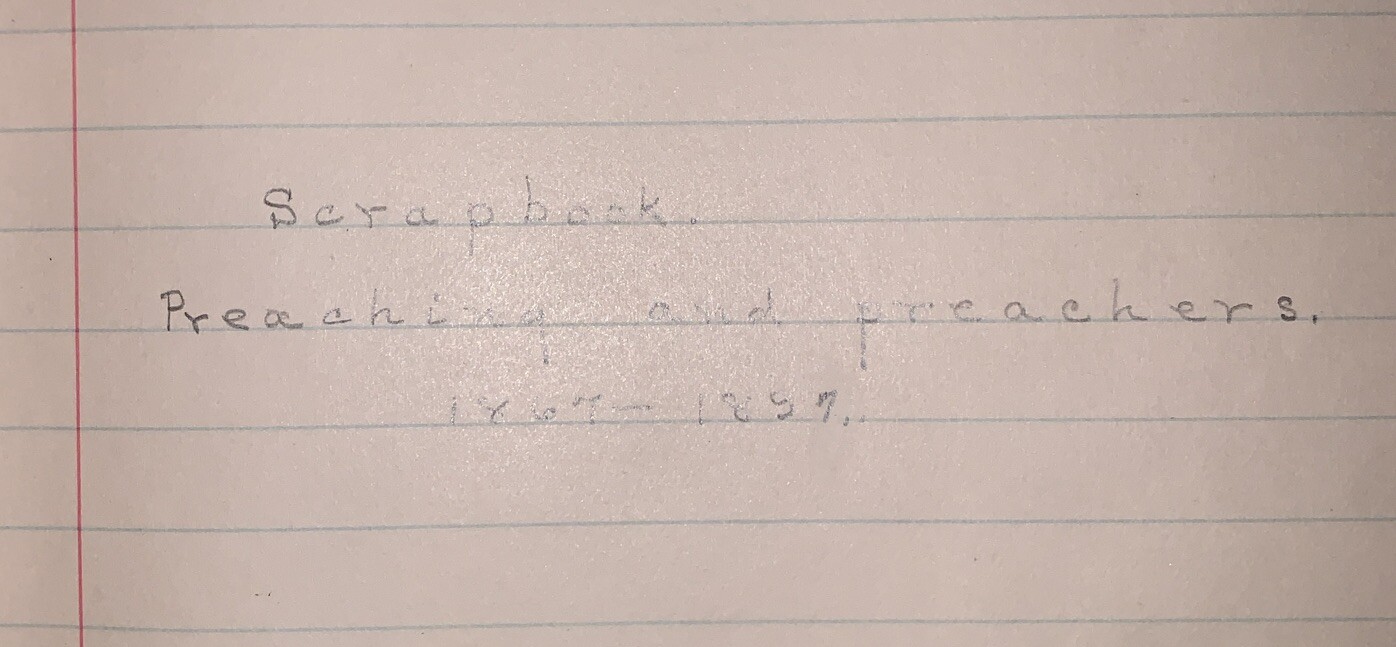 Scrapbook.
Preaching and preachers.
1867–1897.